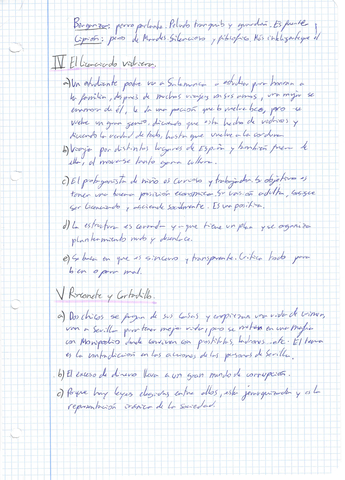 Berganza: perro parlanchín. Peludo tranquilo y guardián. Es fuerte
Cipión: perro de Mahudes silencioso y filosófico. Más inteligente que él
IV El licenciado vidriera.
a) Un estudiante pobre va a Salamanca a estudiar para honrar a
la familia, después de muchos viajes en sus armas, una mujer se
enamora de él, le da una poción que lo vuelve loco, pero se
vuelve un gran genio, diciendo que está hecho de vidrios y
diciendo la verdad de todo, hasta que vuelve a la cordura.
b) Viaja por distintos lugares de españa y también fuera de
ella, al moverse tanto gana cultura.
c) El protagonista de niño es curioso y trabajador. Su objetivo es
tener una buena posición económica. Su unión adulta, consigue
ser licenciado y asciende socialmente. Es un positiva.
d) La estructura es cerrada ya que tiene un plan y se organiza
planteamiento nudo y desenlace.
e) Se basa en que es sincero y transparente. Critica todo para
bien o para mal.
V Rinconete y Cortadillo.
a) Dos chicos se fugan de sus casas y empiezan una vida de crimen,
van a Sevilla para tener mejor vida, pero se meten en una mafia
con Monipodio, donde conviven con prostitutas, ladrones...etc. El tema
es la contradicción en las acciones de las personas de Sevilla.
b) El exceso de dinero lleva a un gran mundo de corrupción.
c) Porque hay leyes elegidas entre ellos, está jerarquizado y es la
representación irónica de la sociedad.